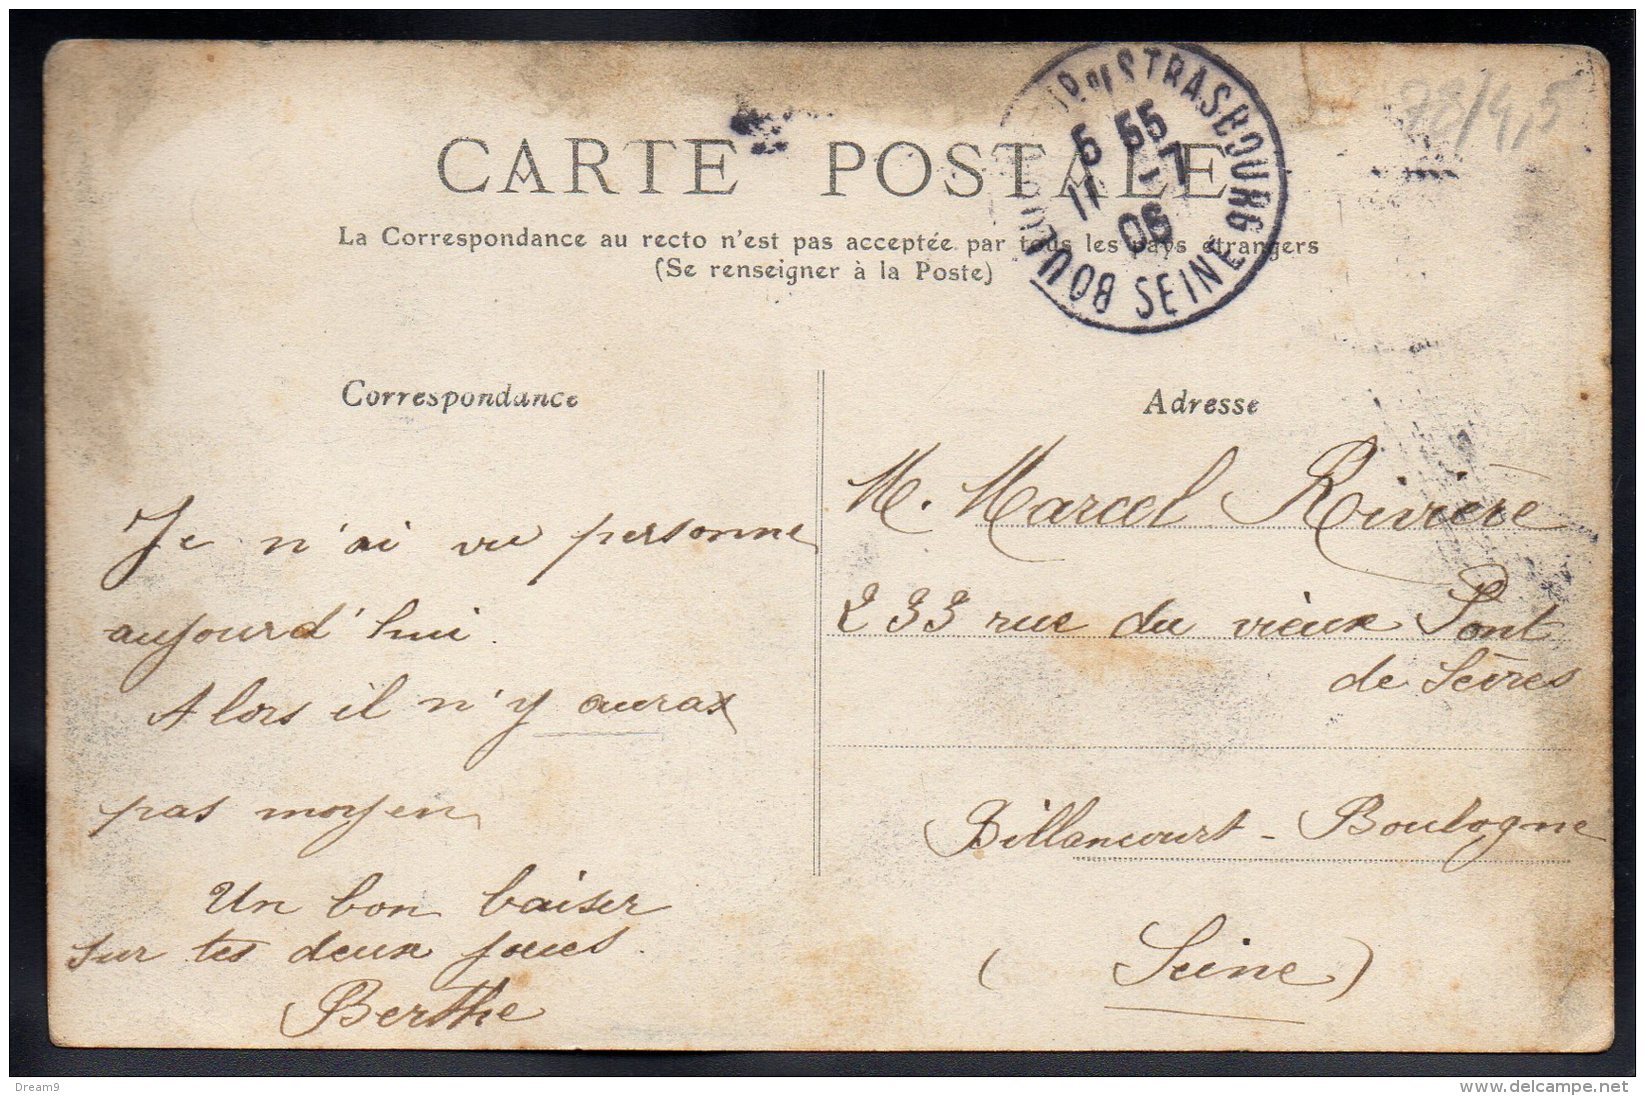 78/4,5
CARTE POSTALE
La Correspondance au recto n'est pas acceptée par tous les pays étrangers
(Se renseigner à la Poste)
STRASBOURG
5 55
11 -7
06
BOUL
SEINE
Correspondance
Je n'ai vu personne
aujourd'hui.
Alors il n'y aura
pas moyen
Un bon baiser
sur tes deux joues.
Berthe
Adresse
M. Marcel Rivière
233 rue du vieux Pont
de Sèvres
Billancourt - Boulogne
(Seine)
Dream9
delcampe.net